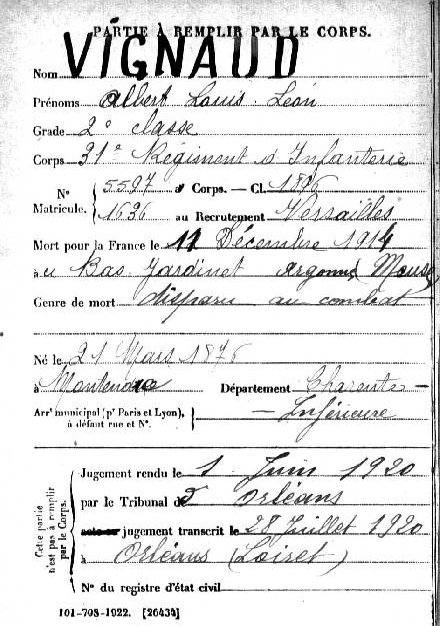 PARTIE À REMPLIR PAR LE CORPS.
Nom VIGNAUD
Prénoms Albert Louis Léon
Grade 2e classe
Corps 31e Régiment d'Infanterie
Nº Matricule. 5597 au Corps. — Cl. 1896
1636 au Recrutement Versailles
Mort pour la France le 11 Décembre 1914
à u Bas Jardinet Argonne (Meuse)
Genre de mort disparu au combat
Né le 21 Mars 1876
à Département Charente-
Arrt municipal (pr Paris et Lyon), à défaut rue et Nº. - Inférieure
Cette partie n'est pas à remplir par le Corps.
Jugement rendu le 1 Juin 1920
par le Tribunal d' Orléans
acte ou jugement transcrit le 28 Juillet 1920
à Orléans (Loiret)
Nº du registre d'état civil
101-708-1922. [26434]